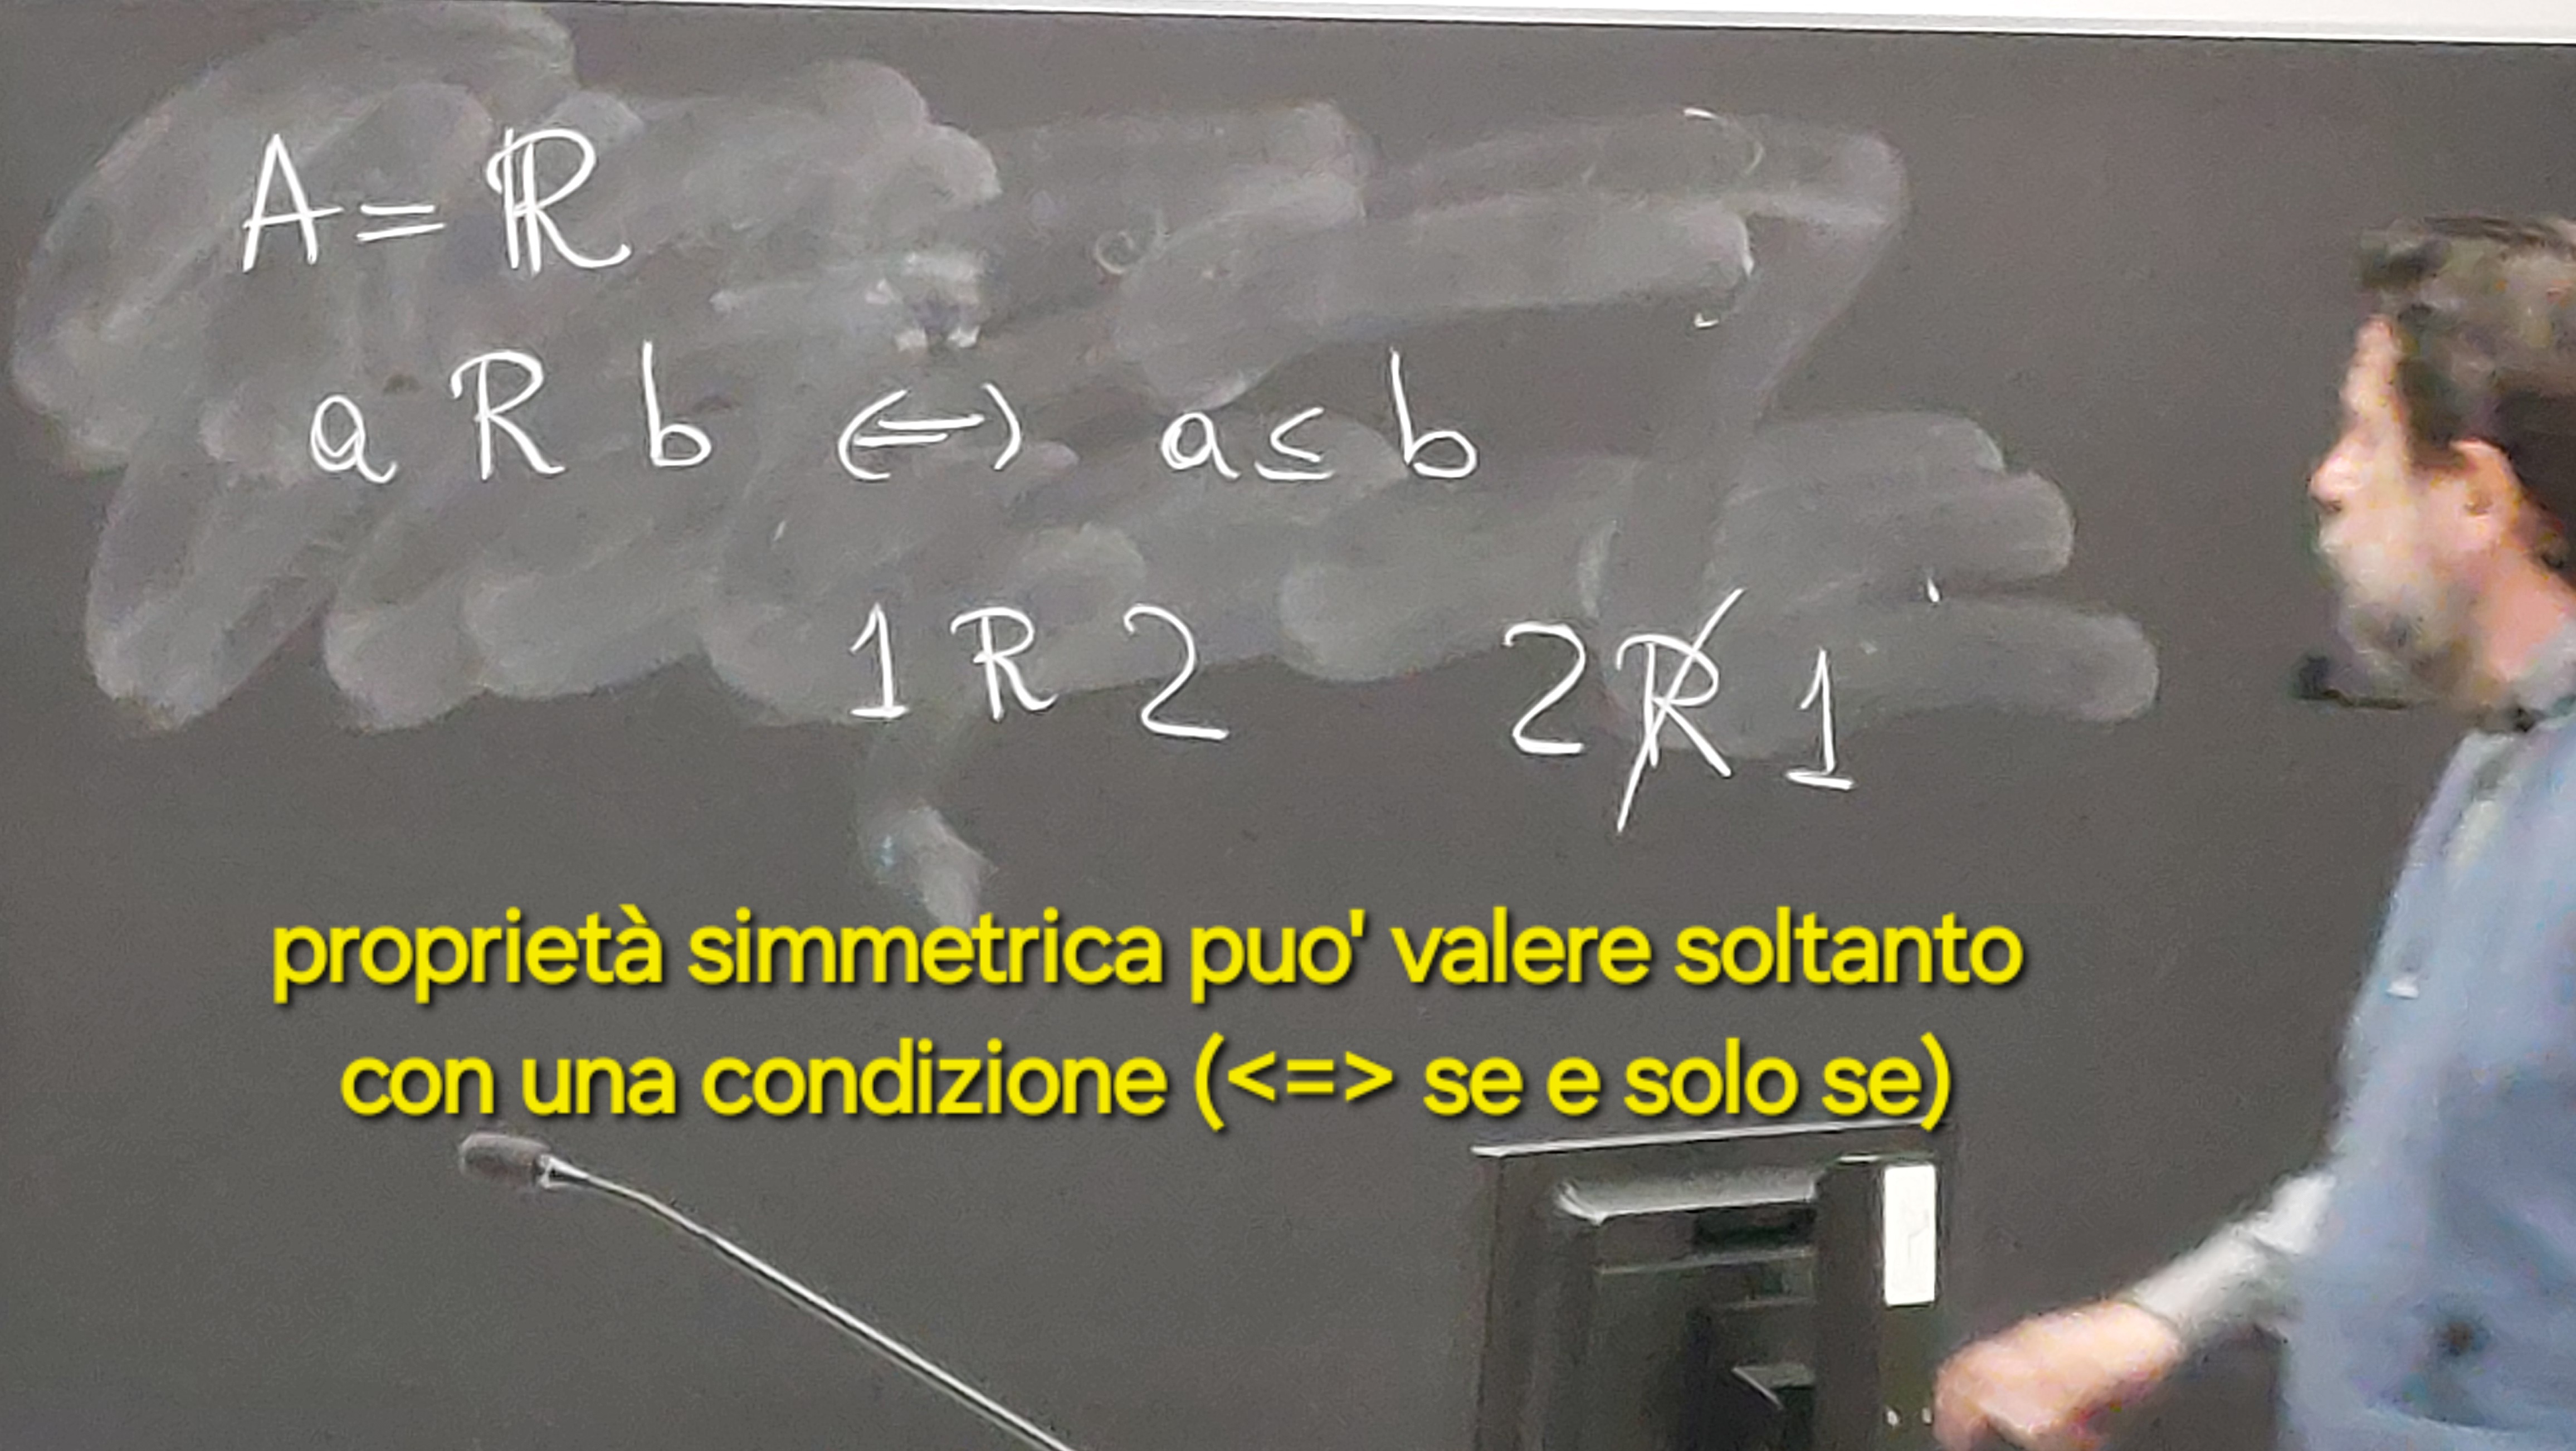 A = ℝ
a R b ⇔ a ≤ b
1 R 2 2 R̸ 1
proprietà simmetrica puo' valere soltanto
con una condizione (<=> se e solo se)